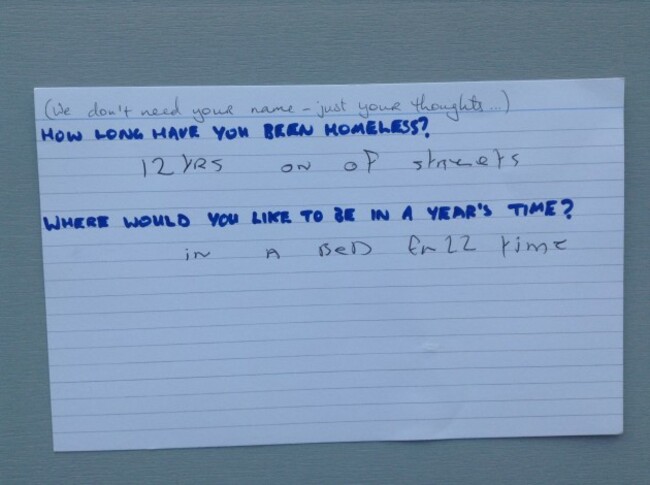 (We don't need your name - just your thoughts...)
HOW LONG HAVE YOU BEEN HOMELESS?
12 YRS ON OF streets
WHERE WOULD YOU LIKE TO BE IN A YEAR'S TIME?
in A BeD full time